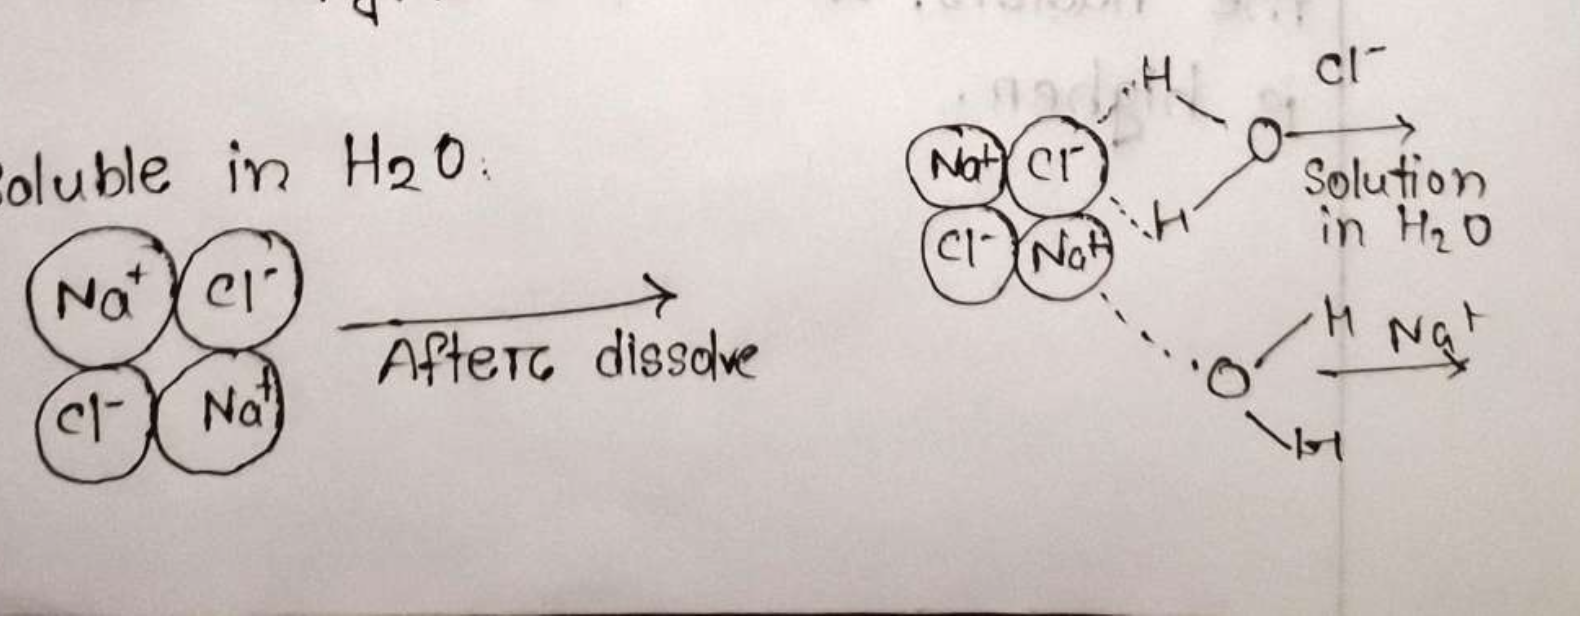 soluble in H2O:
Na+ Cl-
Cl- Na+
After dissolve
Na+ Cl-
Cl- Na+
H
O
H
Cl-
Solution
in H2O
O
H
H
Na+